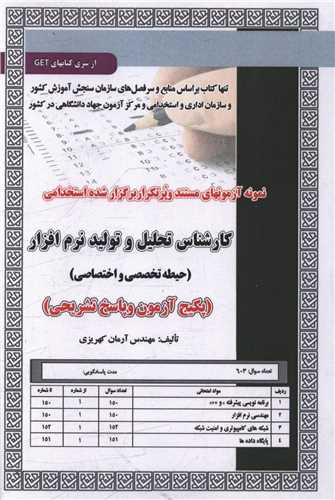 از سری کتابهای GET
تنها کتاب براساس منابع و سرفصل‌های سازمان سنجش آموزش کشور
و سازمان اداری و استخدامی و مرکز آزمون جهاد دانشگاهی در کشور
نمونه آزمونهای مستند و پرتکرار برگزار شده استخدامی
کارشناس تحلیل و تولید نرم افزار
(حیطه تخصصی و اختصاصی)
(پکیج آزمون و پاسخ تشریحی)
تألیف: مهندس آرمان کهریزی
تعداد سوال: ۶۰۳ مدت پاسخگویی:
ردیف مواد امتحانی تعداد سوال از شماره تا شماره
۱ برنامه نویسی پیشرفته و ++c ۱۵۰ ۱ ۱۵۰
۲ مهندسی نرم افزار ۱۵۰ ۱ ۱۵۰
۳ شبکه های کامپیوتری و امنیت شبکه ۱۵۲ ۱ ۱۵۲
۴ پایگاه داده ها ۱۵۱ ۱ ۱۵۱